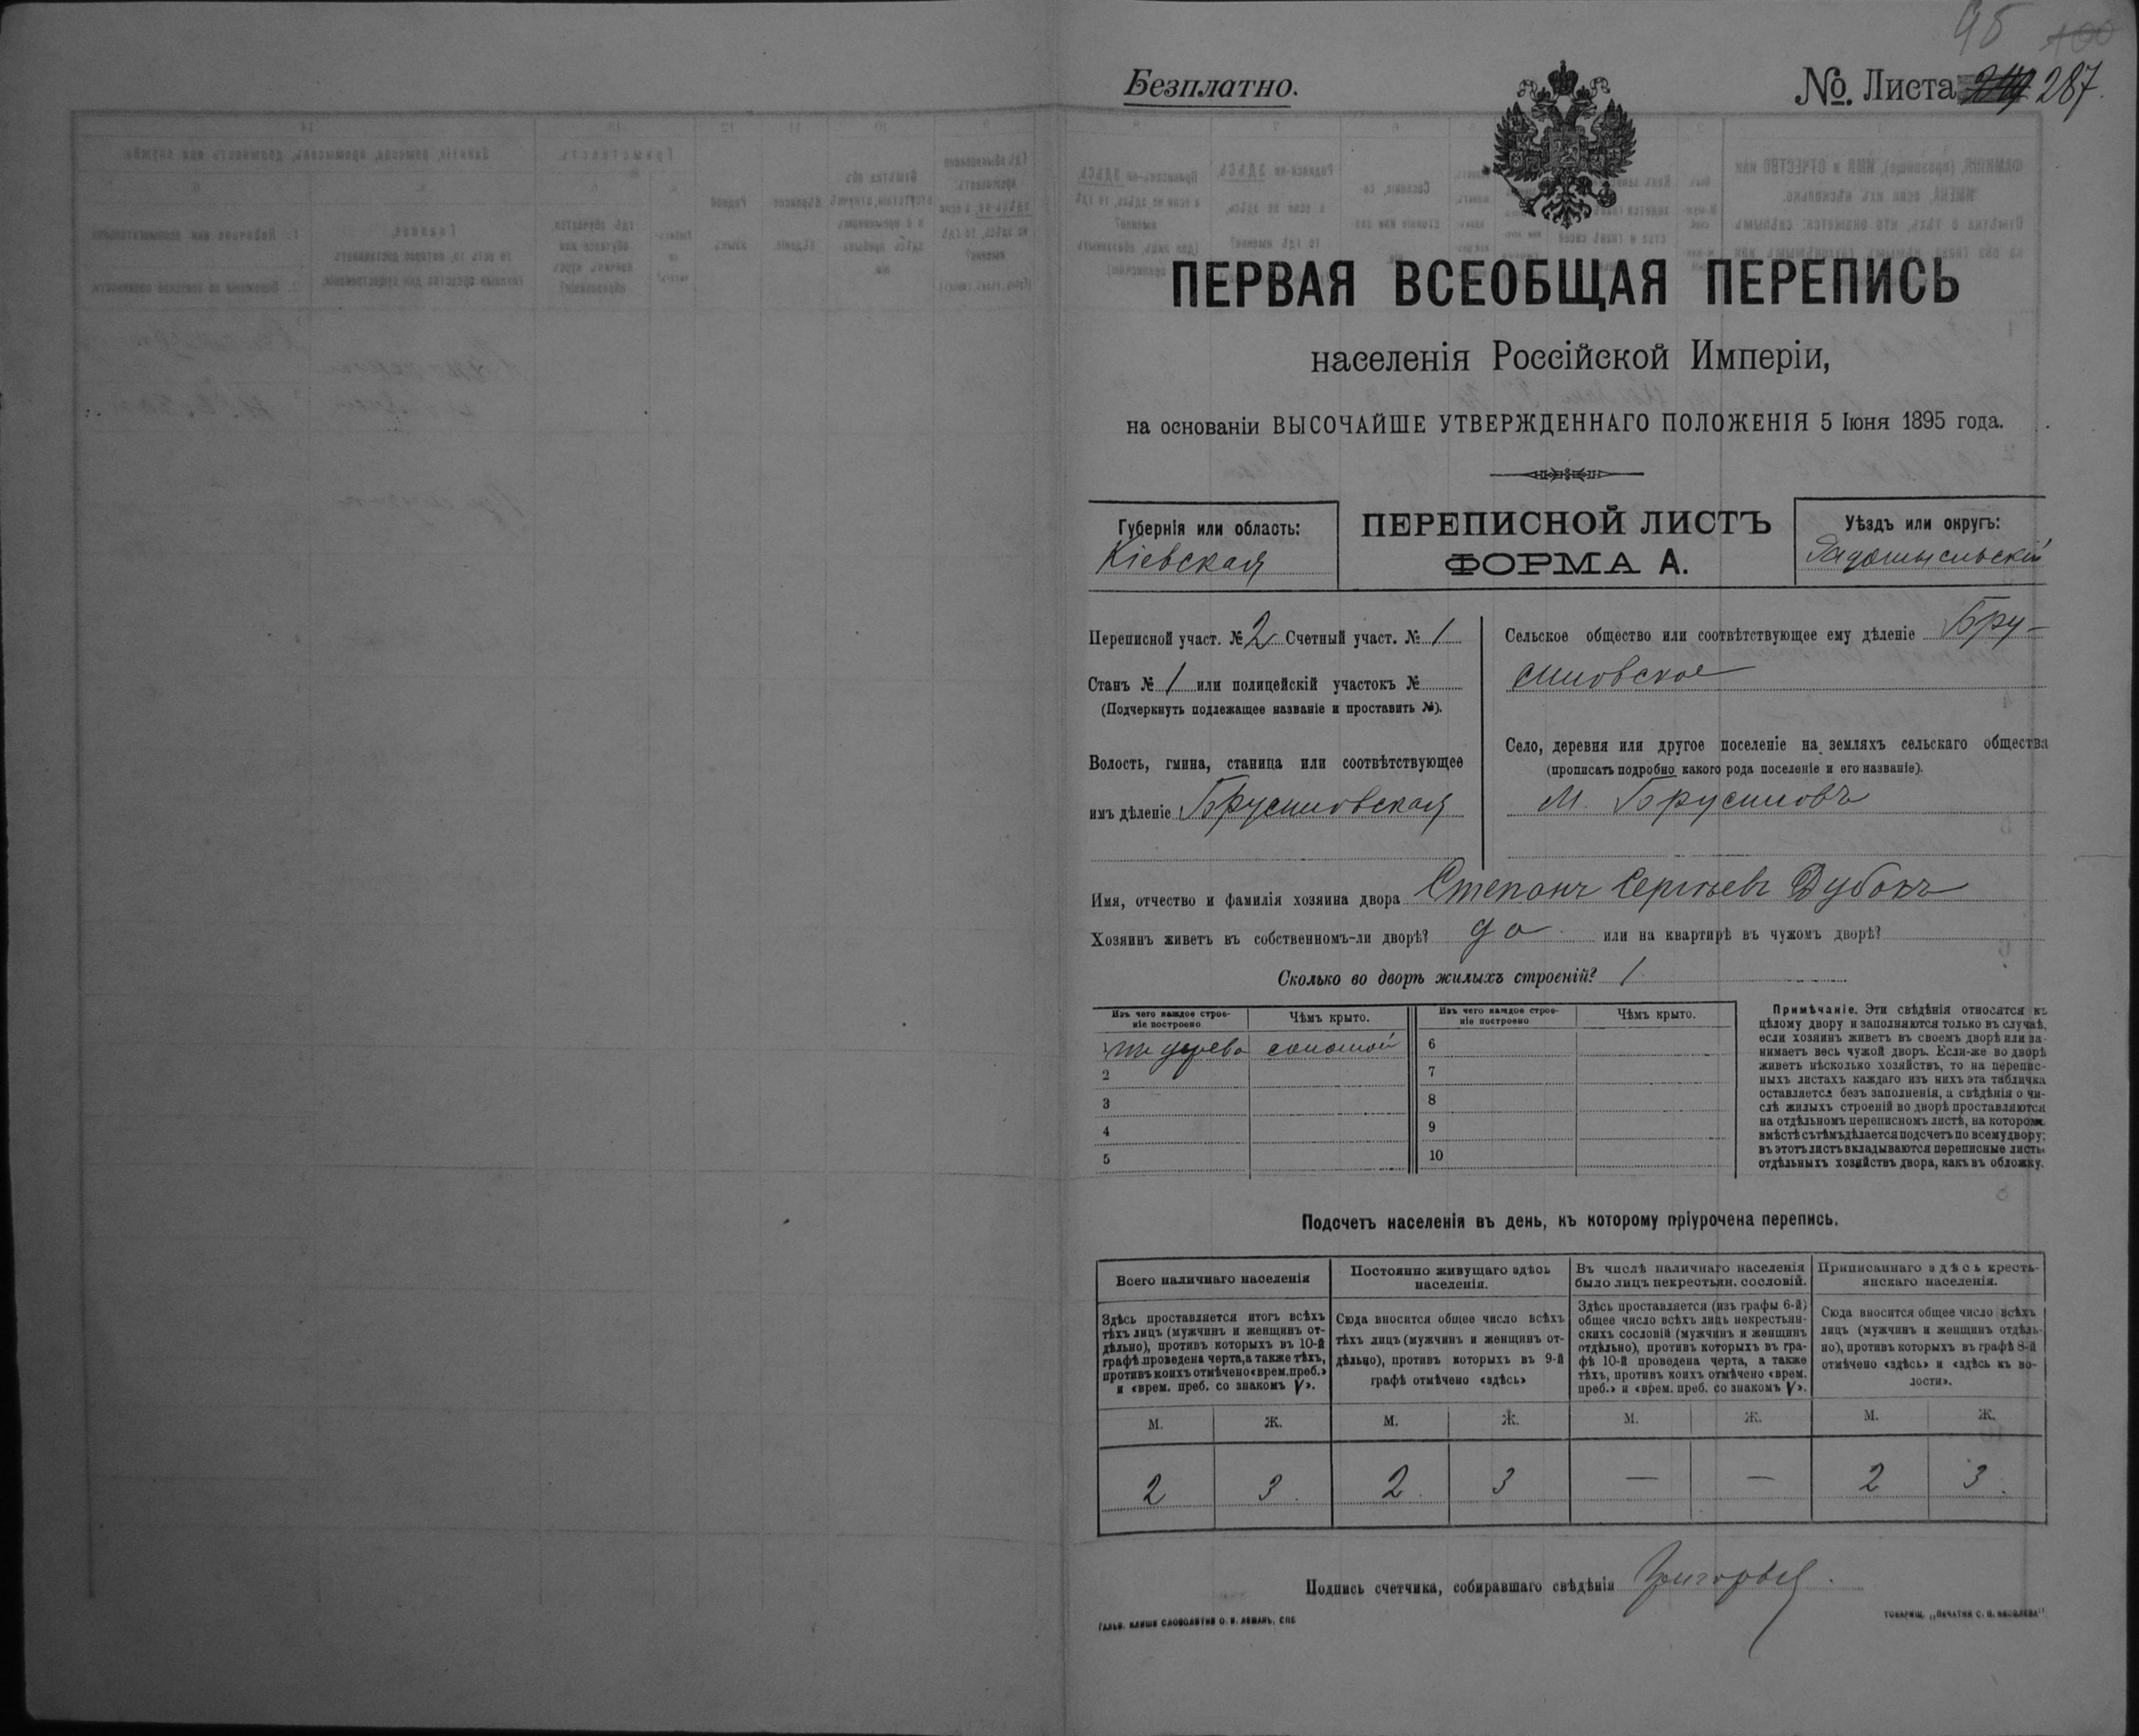 95 100
Безплатно.
№. Листа 287.
ПЕРВАЯ ВСЕОБЩАЯ ПЕРЕПИСЬ
населенія Россійской Имперіи,
на основаніи ВЫСОЧАЙШЕ УТВЕРЖДЕННАГО ПОЛОЖЕНІЯ 5 Іюня 1895 года.
Губернія или область:
Кіевская
ПЕРЕПИСНОЙ ЛИСТЪ
ФОРМА А.
Уѣздъ или округъ:
Радомысльскій
Переписной участ. № 2 Счетный участ. № 1
Станъ № 1 или полицейскій участокъ №
(Подчеркнуть подлежащее названіе и проставить №).
Волость, гмина, станица или соотвѣтствующее
имъ дѣленіе Брусиловская
Сельское общество или соотвѣтствующее ему дѣленіе Бру-
силовское
Село, деревня или другое поселеніе на земляхъ сельскаго общества
(прописать подробно какого рода поселеніе и его названіе).
М. Брусиловъ
Имя, отчество и фамилія хозяина двора Степанъ Сергѣевъ Дубокъ
Хозяинъ живетъ въ собственномъ-ли дворѣ? да. или на квартирѣ въ чужомъ дворѣ?
Сколько во дворѣ жилыхъ строеній? 1
Изъ чего каждое строе-
ніе построено
Чѣмъ крыто.
Изъ чего каждое строе-
ніе построено
Чѣмъ крыто.
1 изъ дерева соломой 6
2 7
3 8
4 9
5 10
Примѣчаніе. Эти свѣдѣнія относятся къ
цѣлому двору и заполняются только въ случаѣ,
если хозяинъ живетъ въ своемъ дворѣ или за-
нимаетъ весь чужой дворъ. Если-же во дворѣ
живетъ нѣсколько хозяйствъ, то на перепис-
ныхъ листахъ каждаго изъ нихъ эта табличка
оставляется безъ заполненія, а свѣдѣнія о чи-
слѣ жилыхъ строеній во дворѣ проставляются
на отдѣльномъ переписномъ листѣ, на которомъ
вмѣстѣ съ тѣмъ дѣлается подсчетъ по всему двору;
въ этотъ листъ вкладываются переписные листы
отдѣльныхъ хозяйствъ двора, какъ въ обложку.
Подсчетъ населенія въ день, къ которому пріурочена перепись.
Всего наличнаго населенія
Постоянно живущаго здѣсь
населенія.
Въ числѣ наличнаго населенія
было лицъ некрестьян. сословій.
Приписаннаго здѣсь кресть-
янскаго населенія.
Здѣсь проставляется итогъ всѣхъ
тѣхъ лицъ (мужчинъ и женщинъ от-
дѣльно), противъ которыхъ въ 10-й
графѣ проведена черта, а также тѣхъ,
противъ коихъ отмѣчено «врем. преб.»
и «врем. преб. со знакомъ V».
Сюда вносится общее число всѣхъ
тѣхъ лицъ (мужчинъ и женщинъ от-
дѣльно), противъ которыхъ въ 9-й
графѣ отмѣчено «здѣсь»
Здѣсь проставляется (изъ графы 6-й)
общее число всѣхъ лицъ некрестьян-
скихъ сословій (мужчинъ и женщинъ
отдѣльно), противъ которыхъ въ гра-
фѣ 10-й проведена черта, а также
тѣхъ, противъ коихъ отмѣчено «врем.
преб.» и «врем. преб. со знакомъ V».
Сюда вносится общее число всѣхъ
лицъ (мужчинъ и женщинъ отдѣль-
но), противъ которыхъ въ графѣ 8-й
отмѣчено «здѣсь» и «здѣсь къ во-
лости».
М. Ж. М. Ж. М. Ж. М. Ж.
2 3. 2. 3 — — 2 3.
Подпись счетчика, собиравшаго свѣдѣнія
ГАЛЬВ. КЛИШЕ СЛОВОЛИТНИ О. И. ЛЕМАНЪ, СПБ
ТОВАРИЩ. „ПЕЧАТНЯ С. П. ЯКОВЛЕВА"